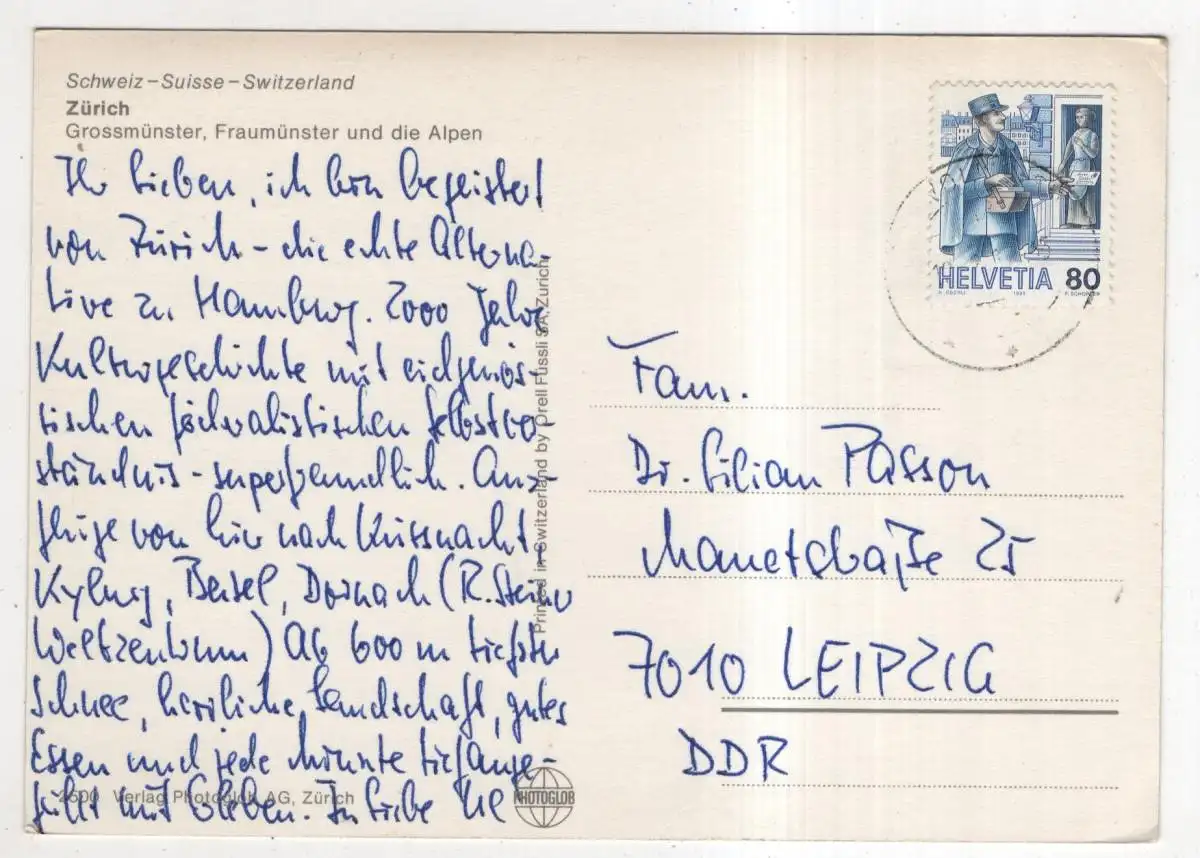 Schweiz – Suisse – Switzerland
Zürich
Grossmünster, Fraumünster und die Alpen
Ihr Lieben, ich bin begeistert
von Zürich – die echte Alterna-
tive zu Hamburg. 2000 Jahre
Kulturgeschichte mit eidgenös-
sischen föderalistischen Selbstver-
ständnis – superfreundlich. Aus-
flüge von hier nach Küssnacht,
Kyburg, Basel, Dornach (R. Steiner
Weltzentrum) Ab 600 m tiefster
Schnee, herrliche Landschaft, gutes
Essen und jede Minute tiefange-
füllt mit Leben. In Liebe
2600 Verlag Photoglob AG, Zürich
PHOTOGLOB
Printed in Switzerland by Orell Füssli SA, Zürich
HELVETIA 80
Fam.
Dr. Lilian Passon
Manetstraße 25
7010 LEIPZIG
DDR